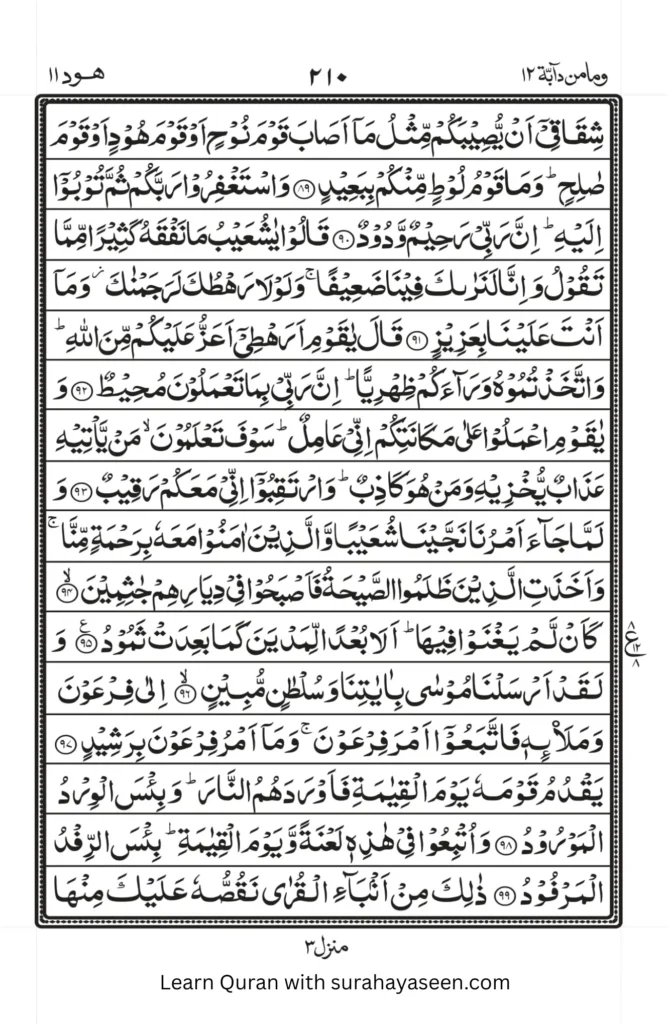 وما من دآبة ١٢ ٢١٠ هود ١١
شِقَاقِيْۤ اَنْ يُّصِيْبَكُمْ مِّثْلُ مَاۤ اَصَابَ قَوْمَ نُوْحٍ اَوْ قَوْمَ هُوْدٍ اَوْ قَوْمَ
صٰلِحٍ ؕ وَمَا قَوْمُ لُوْطٍ مِّنْكُمْ بِبَعِيْدٍ ﴿۸۹﴾ وَاسْتَغْفِرُوْا رَبَّكُمْ ثُمَّ تُوْبُوْۤا
اِلَيْهِ ؕ اِنَّ رَبِّيْ رَحِيْمٌ وَّدُوْدٌ ﴿۹۰﴾ قَالُوْا يٰشُعَيْبُ مَا نَفْقَهُ كَثِيْرًا مِّمَّا
تَقُوْلُ وَاِنَّا لَنَرٰىكَ فِيْنَا ضَعِيْفًا ۚ وَلَوْلَا رَهْطُكَ لَرَجَمْنٰكَ ؗ وَمَاۤ
اَنْتَ عَلَيْنَا بِعَزِيْزٍ ﴿۹۱﴾ قَالَ يٰقَوْمِ اَرَهْطِيْۤ اَعَزُّ عَلَيْكُمْ مِّنَ اللّٰهِ ؕ
وَاتَّخَذْتُمُوْهُ وَرَآءَكُمْ ظِهْرِيًّا ؕ اِنَّ رَبِّيْ بِمَا تَعْمَلُوْنَ مُحِيْطٌ ﴿۹۲﴾ وَ
يٰقَوْمِ اعْمَلُوْا عَلٰى مَكَانَتِكُمْ اِنِّيْ عَامِلٌ ؕ سَوْفَ تَعْلَمُوْنَ ۙ مَنْ يَّاْتِيْهِ
عَذَابٌ يُّخْزِيْهِ وَمَنْ هُوَ كَاذِبٌ ؕ وَارْتَقِبُوْۤا اِنِّيْ مَعَكُمْ رَقِيْبٌ ﴿۹۳﴾ وَ
لَمَّا جَآءَ اَمْرُنَا نَجَّيْنَا شُعَيْبًا وَّالَّذِيْنَ اٰمَنُوْا مَعَهٗ بِرَحْمَةٍ مِّنَّا ۚ
وَاَخَذَتِ الَّذِيْنَ ظَلَمُوا الصَّيْحَةُ فَاَصْبَحُوْا فِيْ دِيَارِهِمْ جٰثِمِيْنَ ﴿۹۴﴾ ۙ
كَاَنْ لَّمْ يَغْنَوْا فِيْهَا ؕ اَلَا بُعْدًا لِّمَدْيَنَ كَمَا بَعِدَتْ ثَمُوْدُ ﴿۹۵﴾ ع وَ
٨ ع ١٢ ٨
لَقَدْ اَرْسَلْنَا مُوْسٰى بِاٰيٰتِنَا وَسُلْطٰنٍ مُّبِيْنٍ ﴿۹۶﴾ ۙ اِلٰى فِرْعَوْنَ
وَمَلَا۟ئِهٖ فَاتَّبَعُوْۤا اَمْرَ فِرْعَوْنَ ۚ وَمَاۤ اَمْرُ فِرْعَوْنَ بِرَشِيْدٍ ﴿۹۷﴾
يَقْدُمُ قَوْمَهٗ يَوْمَ الْقِيٰمَةِ فَاَوْرَدَهُمُ النَّارَ ؕ وَبِئْسَ الْوِرْدُ
الْمَوْرُوْدُ ﴿۹۸﴾ وَاُتْبِعُوْا فِيْ هٰذِهٖ لَعْنَةً وَّيَوْمَ الْقِيٰمَةِ ؕ بِئْسَ الرِّفْدُ
الْمَرْفُوْدُ ﴿۹۹﴾ ذٰلِكَ مِنْ اَنْۢبَآءِ الْقُرٰى نَقُصُّهٗ عَلَيْكَ مِنْهَا
منزل ٣
Learn Quran with surahayaseen.com